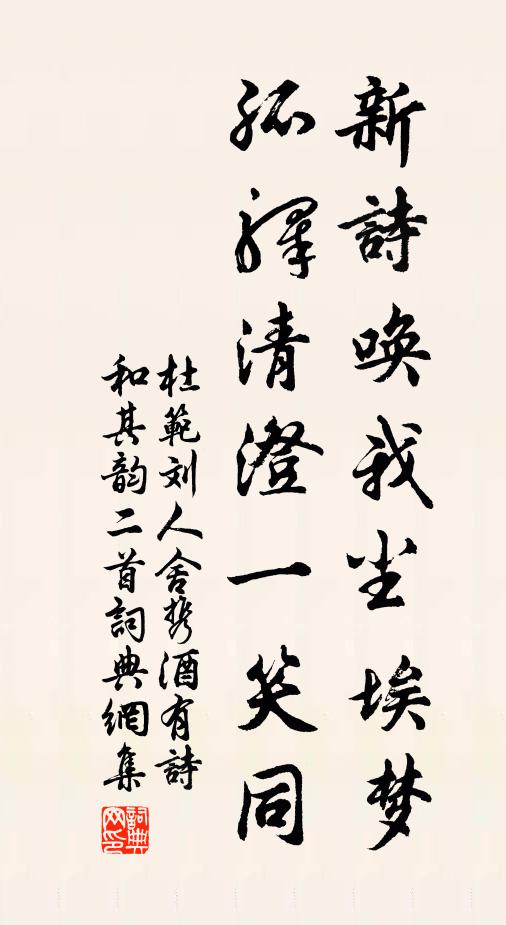 新詩唤我尘埃梦
孤驛清澄一笑同
杜範刘人舍携酒有詩
和其韵二首詞典網集
詞典
网印